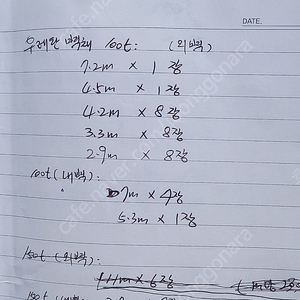 DATE.
우레탄 벽체 100t : (외벽)
7.2m x 1장
4.5m x 1장
4.2m x 8장
3.3m x 8장
2.9m x 8장
100t (내벽) :
7m x 4장
5.3m x 1장
150t (외벽)
11m x 6장